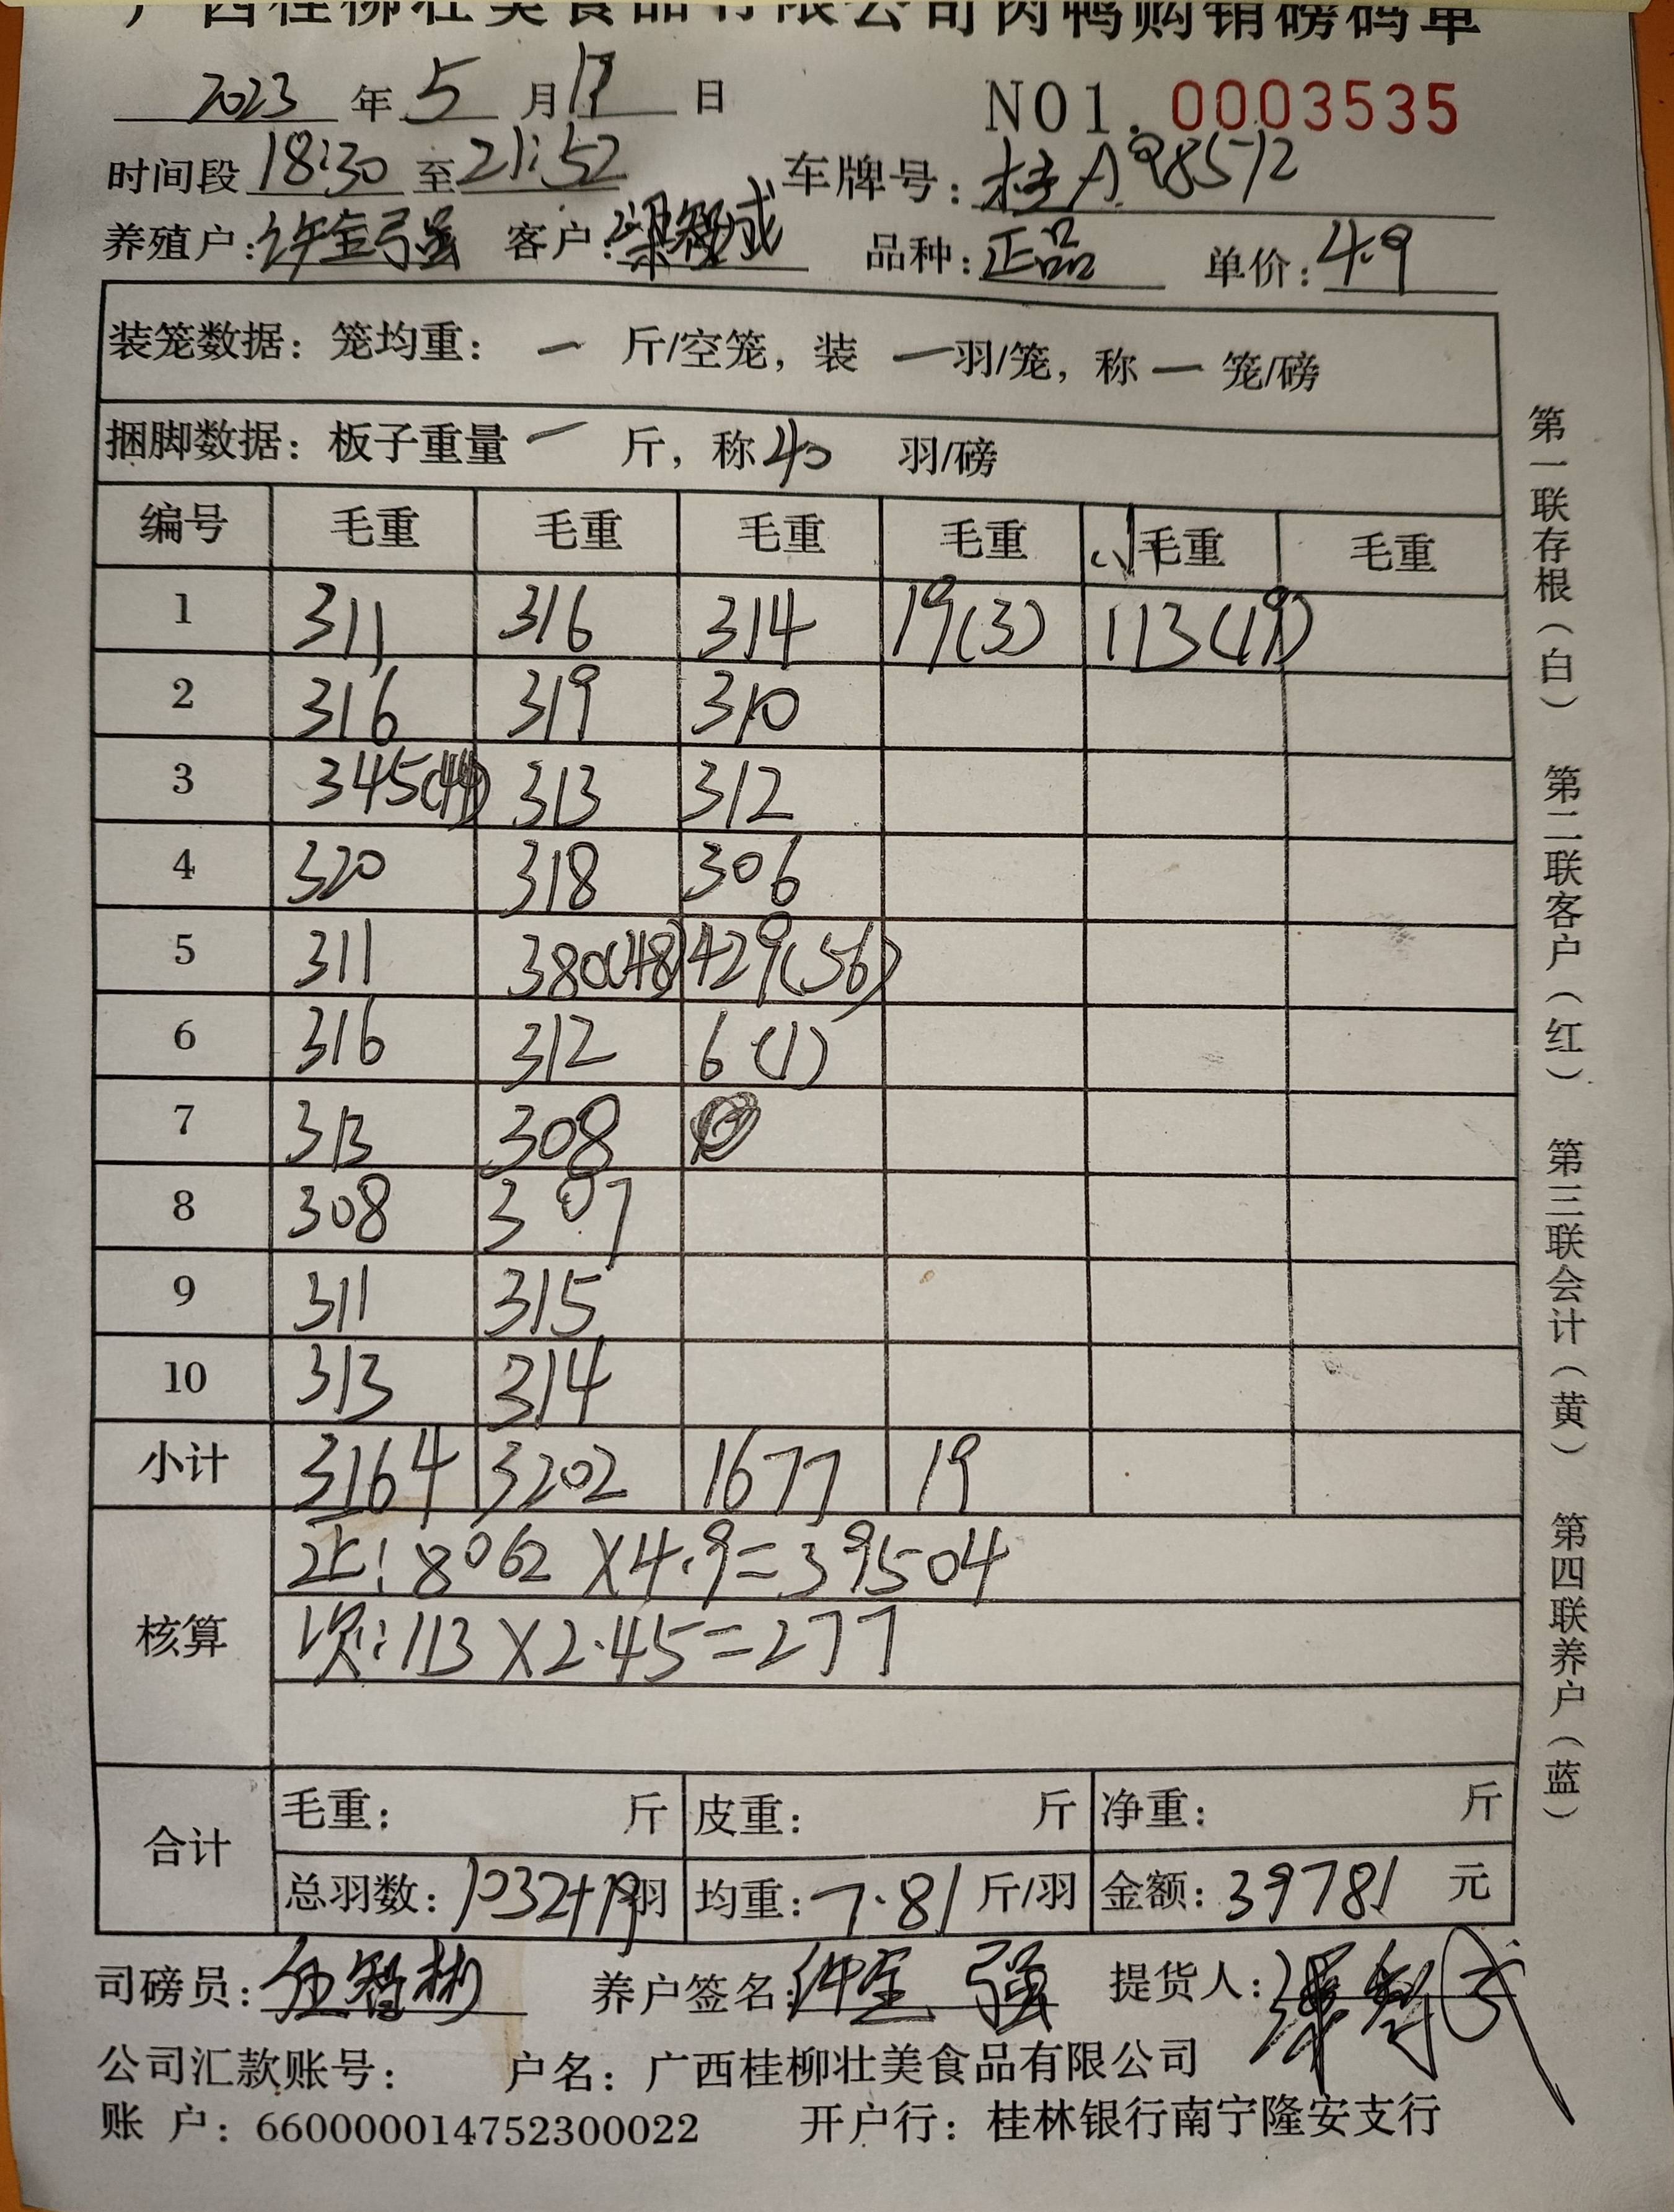 广西桂柳壮美食品有限公司肉鸭购销磅码单
2023 年 5 月 17 日 NO1. 0003535
时间段 18:30 至 21:52 车牌号: 桂A98572
养殖户: 许金强 客户: 品种: 正品 单价: 4.9
装笼数据: 笼均重: 一 斤/空笼, 装 一 羽/笼, 称 一 笼/磅
捆脚数据: 板子重量 一 斤, 称 40 羽/磅
编号 毛重 毛重 毛重 毛重 小毛重 毛重
1 311 316 314 19(3) 113(19)
2 316 319 310
3 345(44) 313 312
4 320 318 306
5 311 380(48) 429(56)
6 316 312 6(1)
7 313 308
8 308 307
9 311 315
10 313 314
小计 3164 3202 1677 19
核算
正: 8062 X4.9=39504
次: 113 X2.45=277
合计
毛重: 斤 皮重: 斤 净重: 斤
总羽数: 1032+19 羽 均重: 7.81 斤/羽 金额: 39781 元
司磅员: 伍智彬 养户签名: 许金强 提货人:
公司汇款账号: 户名: 广西桂柳壮美食品有限公司
账 户: 660000014752300022 开户行: 桂林银行南宁隆安支行
第一联存根(白) 第二联客户(红) 第三联会计(黄) 第四联养户(蓝)